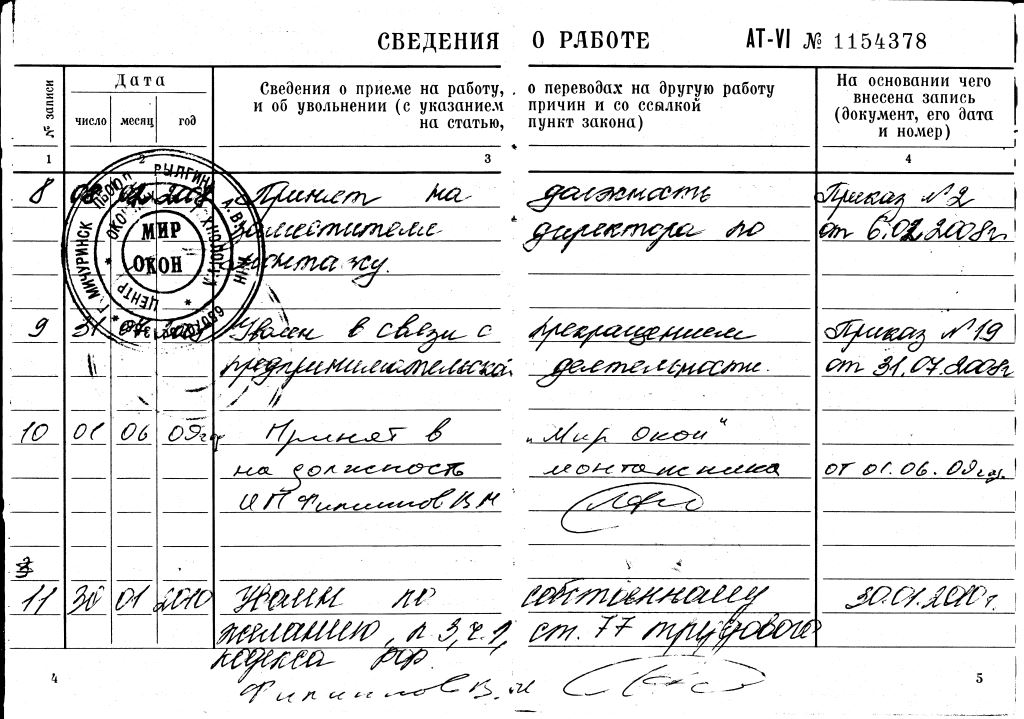 СВЕДЕНИЯ О РАБОТЕ АТ-VI № 1154378
№ записи
Дата
число месяц год
Сведения о приеме на работу, о переводах на другую работу
и об увольнении (с указанием причин и со ссылкой
на статью, пункт закона)
На основании чего
внесена запись
(документ, его дата
и номер)
1 2 3 4
8 Принят на должность Приказ №2
заместителя директора по от 6.02.2008г
монтажу.
МИР
ОКОН
Г. МИЧУРИНСК
ЦЕНТР
9 31 Уволен в связи с прекращением Приказ №19
предпринимательской деятельности. от 31.07.2008г
10 01 06 09 Принят в „Мир окон"
на должность монтажника от 01.06.09
ИП Филиппов В М
11 30 01 2010 Уволен по собственному 30.01.2010г.
желанию, п 3, ч. 1, ст. 77 трудового
кодекса РФ.
Филиппов В. М
4 5